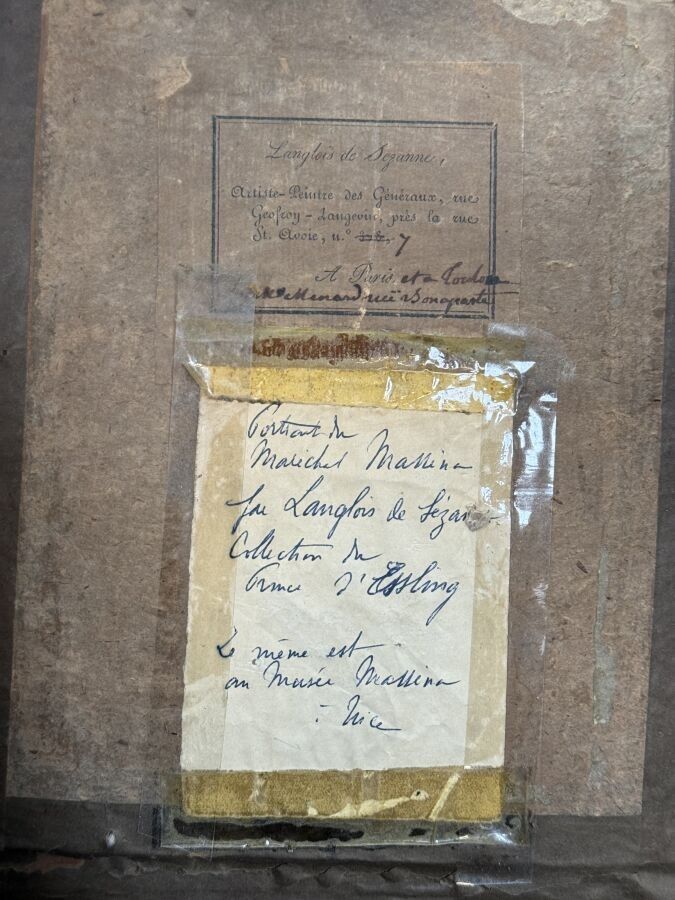 Langlois de Sezanne,
Artiste-Peintre des Généraux, rue
Geofroy-Langevin, près la rue
St. Avoie, n.° 7
A Paris, et a Toulon
Menard rue Bonaparte
Portrait du
Maréchal Massena
par Langlois de Sézanne
Collection du
Prince d'Essling
Le même est
au Musée Massena
à Nice